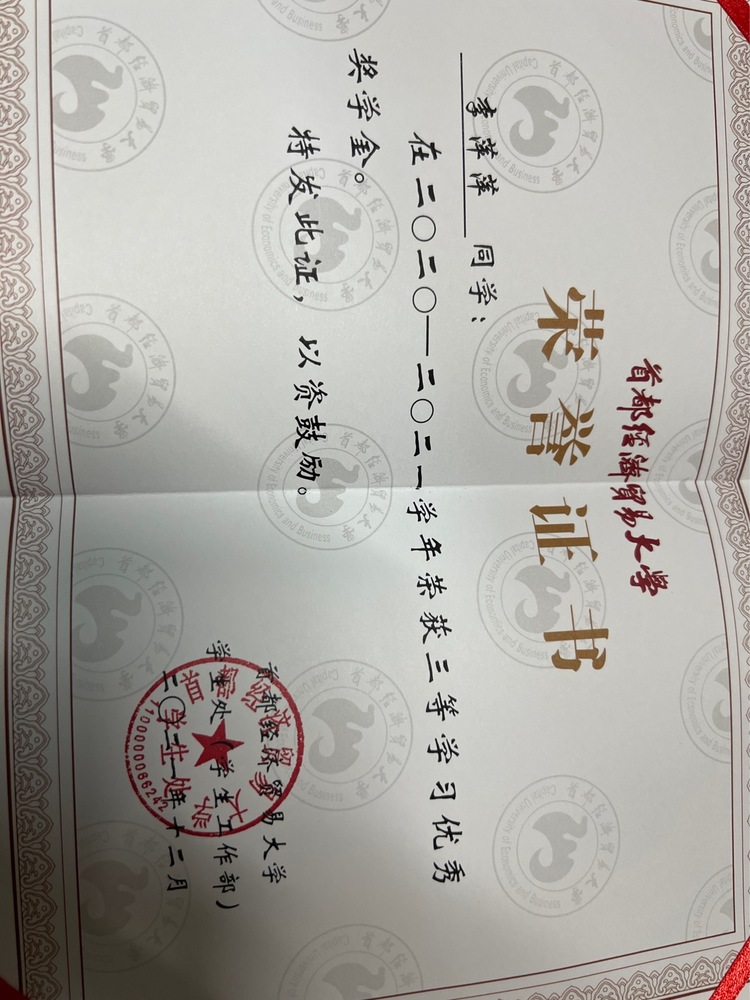 首都经济贸易大学
荣誉证书
李萍萍 同学：
在二〇二〇—二〇二一学年荣获三等学习优秀
奖学金。
特发此证，以资鼓励。
首都经济贸易大学
学生处（学生工作部）
二〇二一年十二月